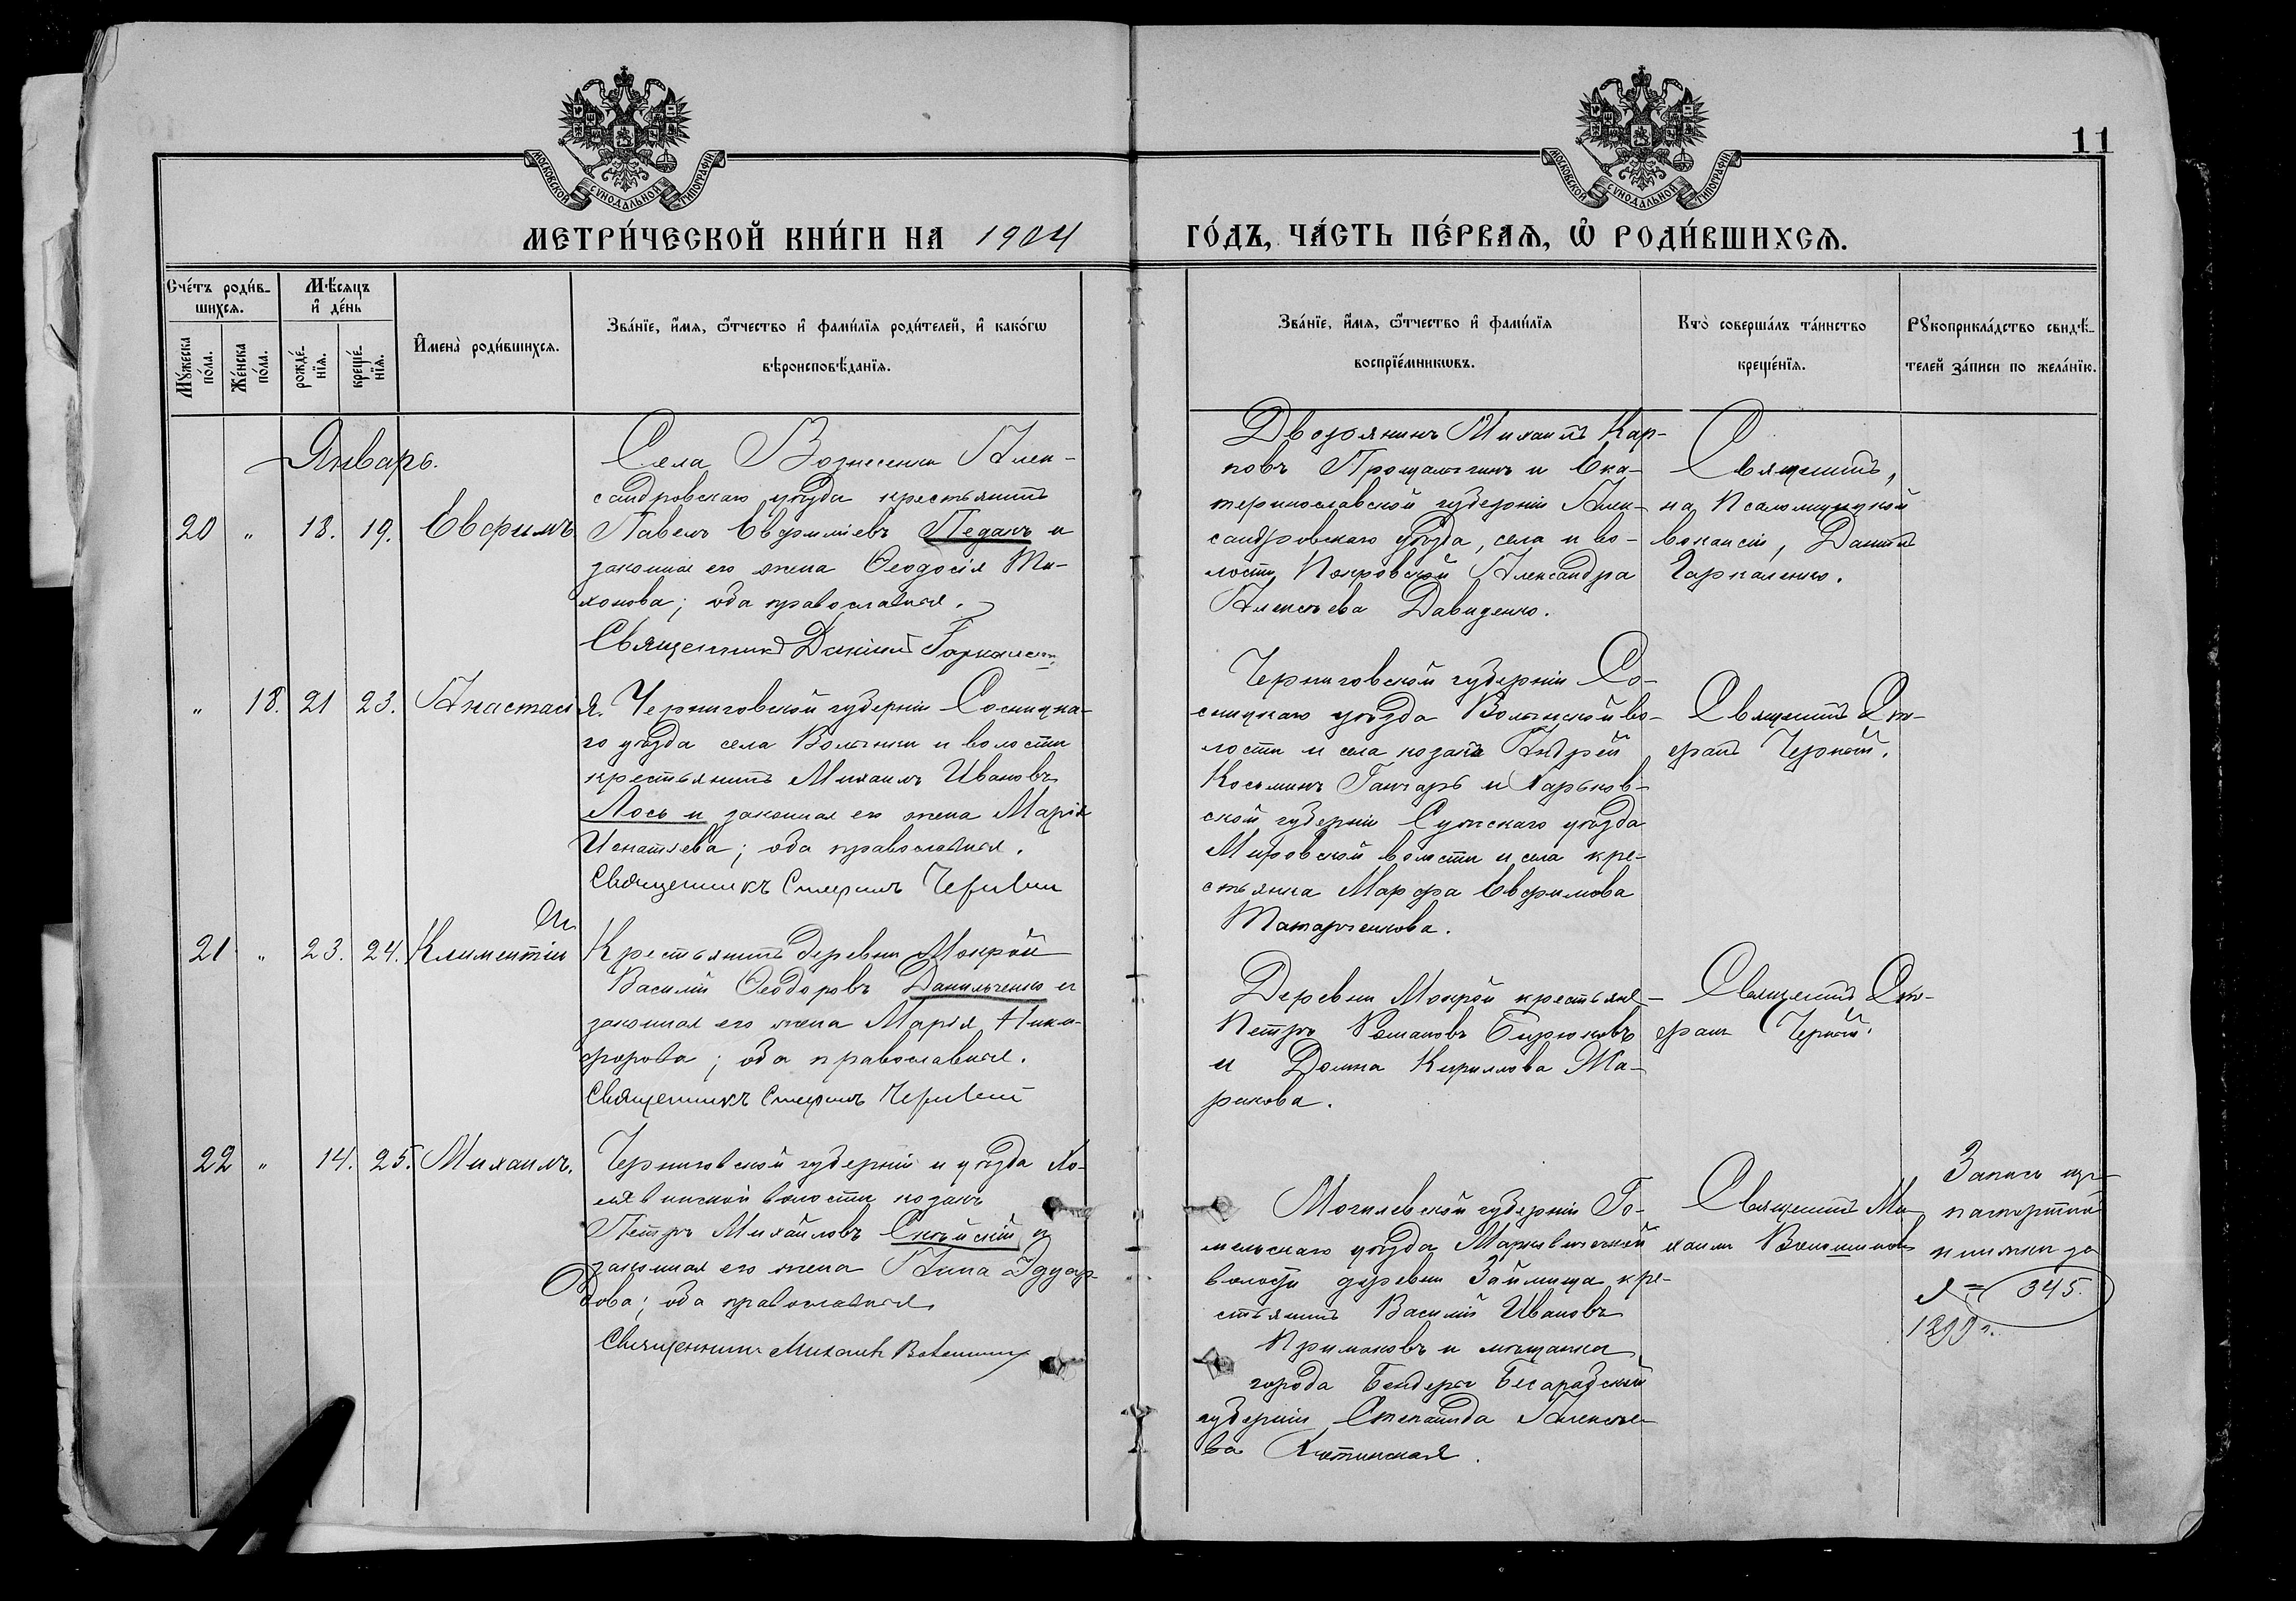 МОСКОВСКОЙ СѴНОДАЛЬНОЙ ТИПОГРАФІИ
МОСКОВСКОЙ СѴНОДАЛЬНОЙ ТИПОГРАФІИ
11
МЕТРИ́ЧЕСКОЙ КНИ́ГИ НА 1904
ГО́ДЪ, ЧА́СТЬ ПЕ́РВАѦ, Ѡ҆ РОДИ́ВШИХСѦ.
Сче́тъ роди́в-
шихсѧ.
Мѣ́сѧцъ
и҆ де́нь
Мꙋ́жеска
по́ла.
Же́нска
по́ла.
рожде́-
нїѧ.
креще́-
нїѧ.
И҆мена̀ роди́вшихсѧ.
Зва́нїе, и҆́мѧ, ѻ҆́тчество и҆ фами́лїѧ роди́телей, и҆ како́гѡ
вѣроисповѣ́данїѧ.
Зва́нїе, и҆́мѧ, ѻ҆́тчество и҆ фами́лїѧ
воспрїе́мникѡвъ.
Кто̀ соверша́лъ та́инство
креще́нїѧ.
Рꙋкоприкла́дство свидѣ́-
телей за́писи по жела́нїю.
Январь.
20 " 18. 19. Евфимъ
Села Вознесенки Алек-
сандровскаго уѣзда крестьянинъ
Павелъ Евфиміевъ Педанъ и
законная его жена Ѳеодосія Ти-
хонова; оба православные.
Священникъ Даніилъ Гаркаленко
Дворянинъ Михаилъ Кар-
повъ и Ека-
теринославской губерніи Алек-
сандровскаго уѣзда, села и во-
лости Покровской Александра
Алексѣева Давиденко.
Священникъ,
на Псаломщицкой
вакансіи, Даніилъ
Гаркаленко.
" 18. 21 23. Анастасія.
Черниговской губерніи Сосницка-
го уѣзда села Волынки и волости
крестьянинъ Михаилъ Ивановъ
Лось и законная его жена Марія
Игнатьева; оба православные.
Священникъ Стефанъ Черный
Черниговской губерніи Со-
сницкаго уѣзда Волынской во-
лости и села козакъ Андрей
Косьминъ Ганчаръ и Харьков-
ской губерніи Сумскаго уѣзда
Мировской волости и села кре-
стьянка Марфа Евфимова
Татарченкова.
Священникъ Сте-
фанъ Черный.
21 " 23. 24. Климентій
Крестьянинъ деревни Мокрой
Василій Ѳеодоровъ Данильченко и
законная его жена Марія Ники-
форова; оба православные.
Священникъ Стефанъ Черный
Деревни Мокрой крестьяне
Петръ Романовъ Бирюковъ
и Домна Кириллова Жа-
рикова.
Священникъ Сте-
фанъ Черный.
22 " 14. 25. Михаилъ.
Черниговской губерніи и уѣзда
волости козакъ
Петръ Михайловъ и
законная его жена Анна Эдуар-
дова; оба православные.
Священникъ Михаилъ
Могилевской губерніи Го-
мельскаго уѣзда Марковичской
волости деревни Займища кре-
стьянинъ Василій Ивановъ
Примаковъ и мѣщанка
города Бендеры Бесарабской
губерніи Степанида Алексѣе-
ва Хотинская.
Священникъ Ми-
хаилъ
Запись
паспортной
книжки за
№ 345.